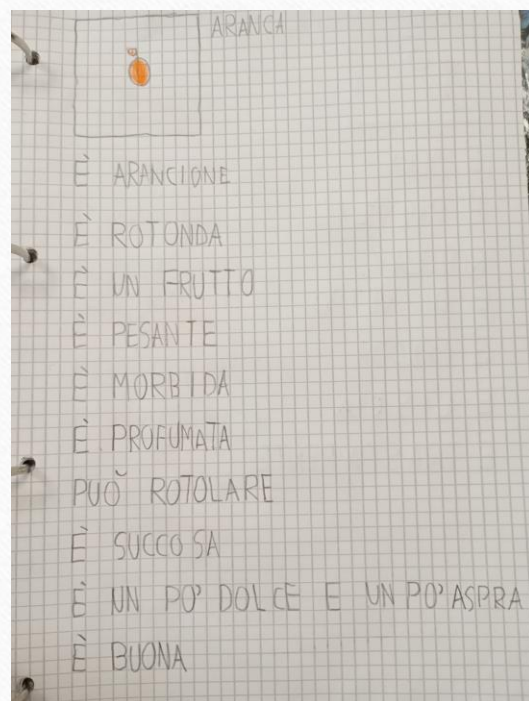 ARANCA
È ARANCIONE
È ROTONDA
È UN FRUTTO
È PESANTE
È MORBIDA
È PROFUMATA
PUÒ ROTOLARE
È SUCCOSA
È UN PO' DOLCE E UN PO' ASPRA
È BUONA